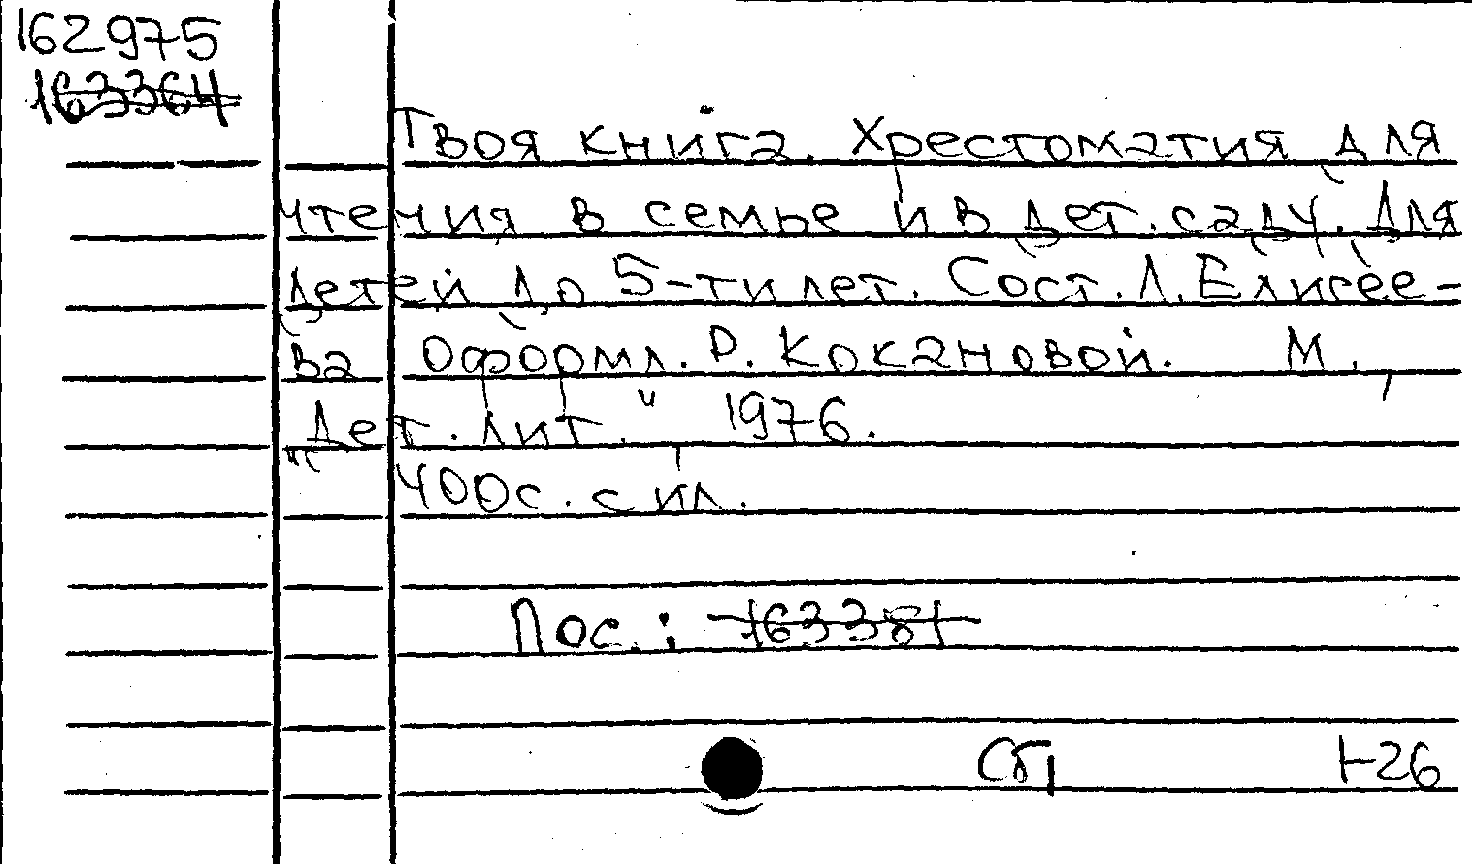 162975
163364
Твоя книга. Хрестоматия для
чтения в семье и в дет. саду. Для
детей до 5-ти лет. Сост. Л. Елисее-
ва Оформл. Р. Кокановой. М.,
"Дет. лит." 1976.
400 с. с ил.
Пос.: 163381
Сб1 1-26